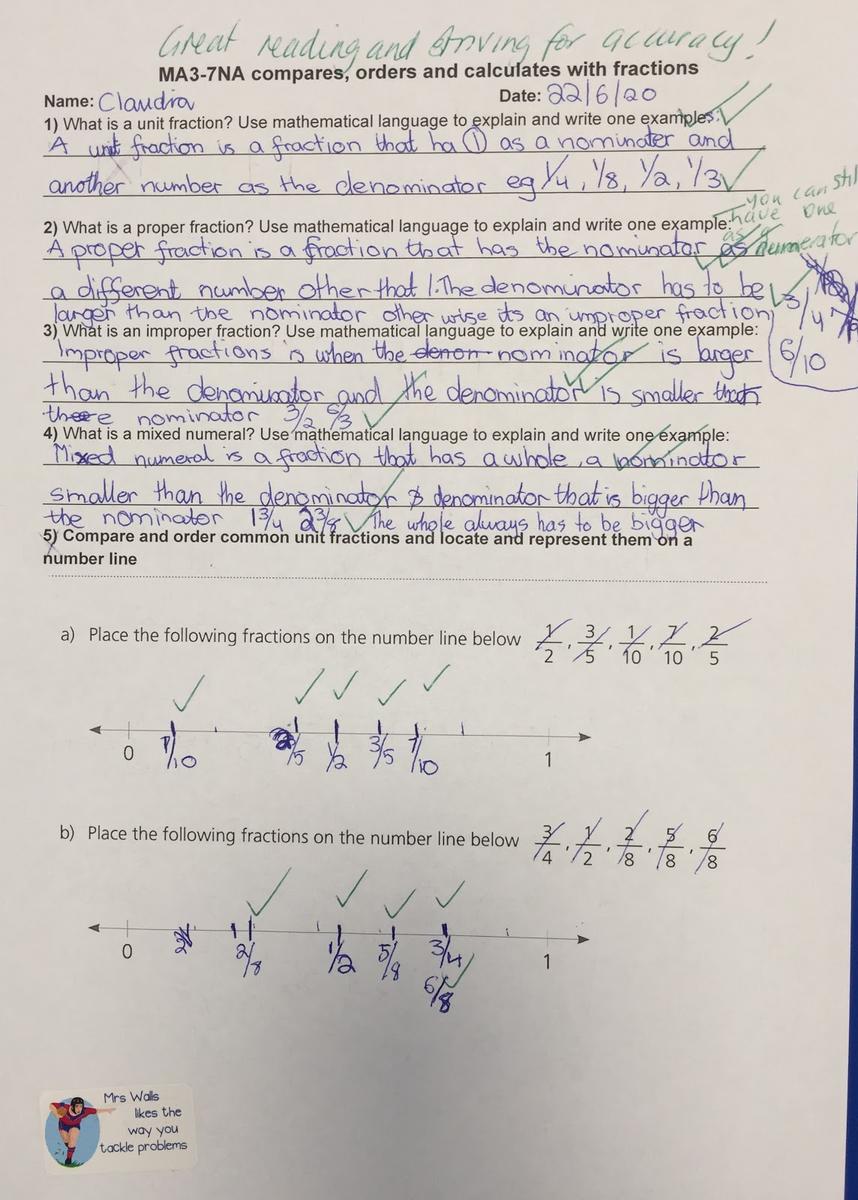 Great reading and striving for accuracy!
MA3-7NA compares, orders and calculates with fractions
Name: Claudia Date: 22/6/20
1) What is a unit fraction? Use mathematical language to explain and write one examples:
A unit fraction is a fraction that ha 1 as a nominater and
another number as the denominator eg 1/4, 1/8, 1/2, 1/3
you can still
have one
as a numerator
2) What is a proper fraction? Use mathematical language to explain and write one example:
A proper fraction is a fraction that has the nominator as
a different number other that 1. The denominator has to be
larger than the nominator other wise its an improper fraction
3/4
6/10
3) What is an improper fraction? Use mathematical language to explain and write one example:
Improper fractions is when the denom nominator is larger
than the denominator and the denominator is smaller than
there nominator 3/2 6/3
4) What is a mixed numeral? Use mathematical language to explain and write one example:
Mixed numeral is a fraction that has a whole, a nominator
smaller than the denominator & denominator that is bigger than
the nominator 1 3/4 2 3/8 The whole always has to be bigger
5) Compare and order common unit fractions and locate and represent them on a
number line
a) Place the following fractions on the number line below 1/2, 3/5, 1/10, 7/10, 2/5
0 1/10 2/5 1/2 3/5 7/10 1
b) Place the following fractions on the number line below 3/4, 1/2, 2/8, 5/8, 6/8
0 2/8 1/2 5/8 3/4 1
6/8
Mrs Walls
likes the
way you
tackle problems